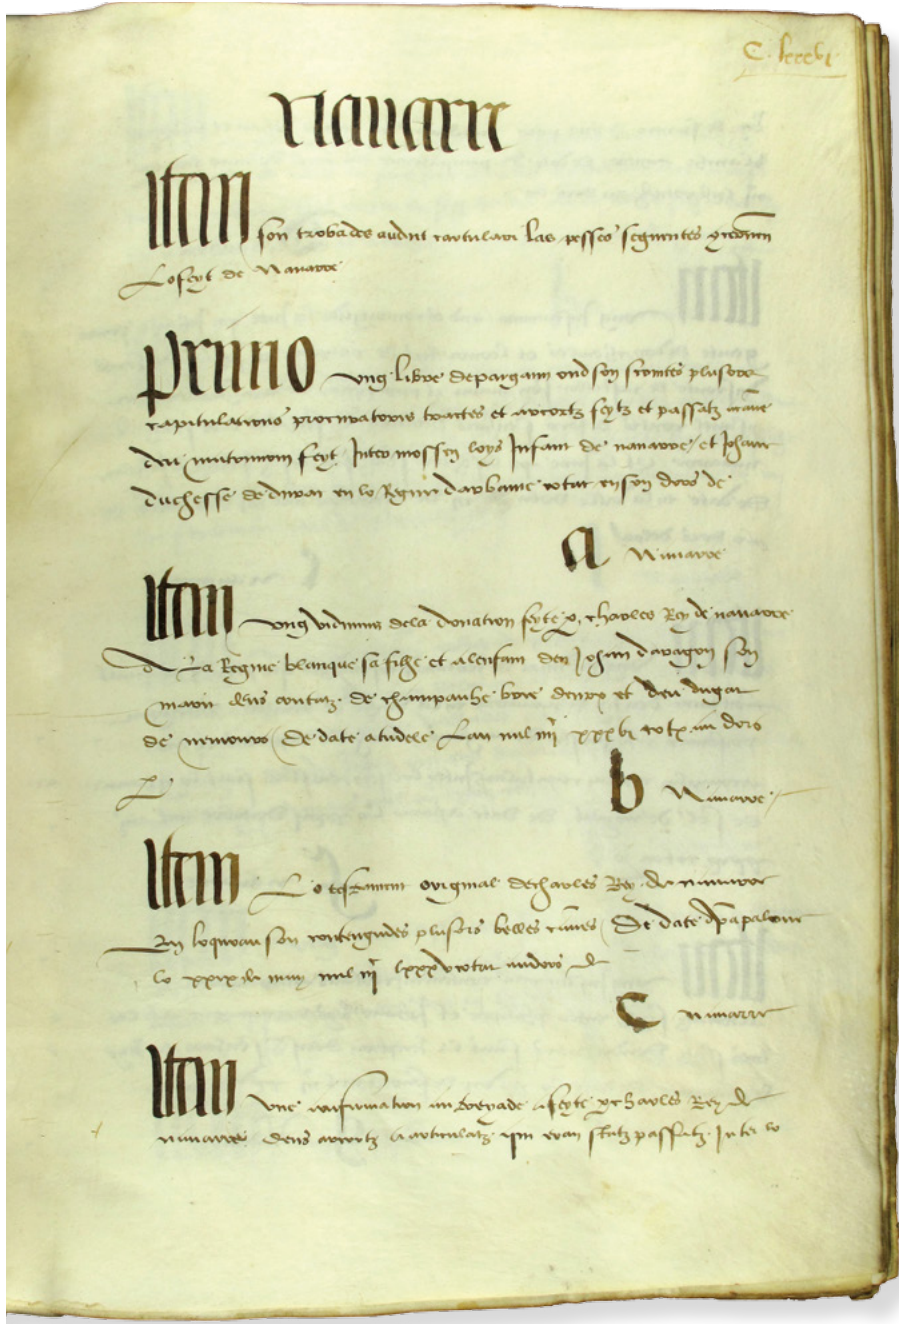 C lxxxvi
Navarre
Item son trobades audit cartulari las pesses seguentes
Lo feyt de Navarre
Primo ung libre de pargam ond son scriutes plusors
capitulations procuratoris tractes et accortz feytz et passatz
deu matrimoni feyt Inter mossen loys Infant de navarre et Johane
duchesse de duras en lo Regne d'arbanie cotat en son dors de
a Navarre
Item ung vidimus de la donation feyte p charles Rey de navarre
A La Regine blanque sa filhe et a l enfant don Johan d aragon son
marit deus contatz de champanhe brie et deu dugat
de nemours De date a tudele L an mil iiii xxxvi cotx au dors
p
b Navarre
Item Lo testament original de charles Rey de navarre
En loquoau son contengudes plusors belles causes De date a pampalone
lo xxix de mil lxxxv cotat au dors de
C Navarre
Item une confirmation autreyade a feyte p charles Rey de
navarre deus accortz articulatz qui eran statz passatz Inter lo